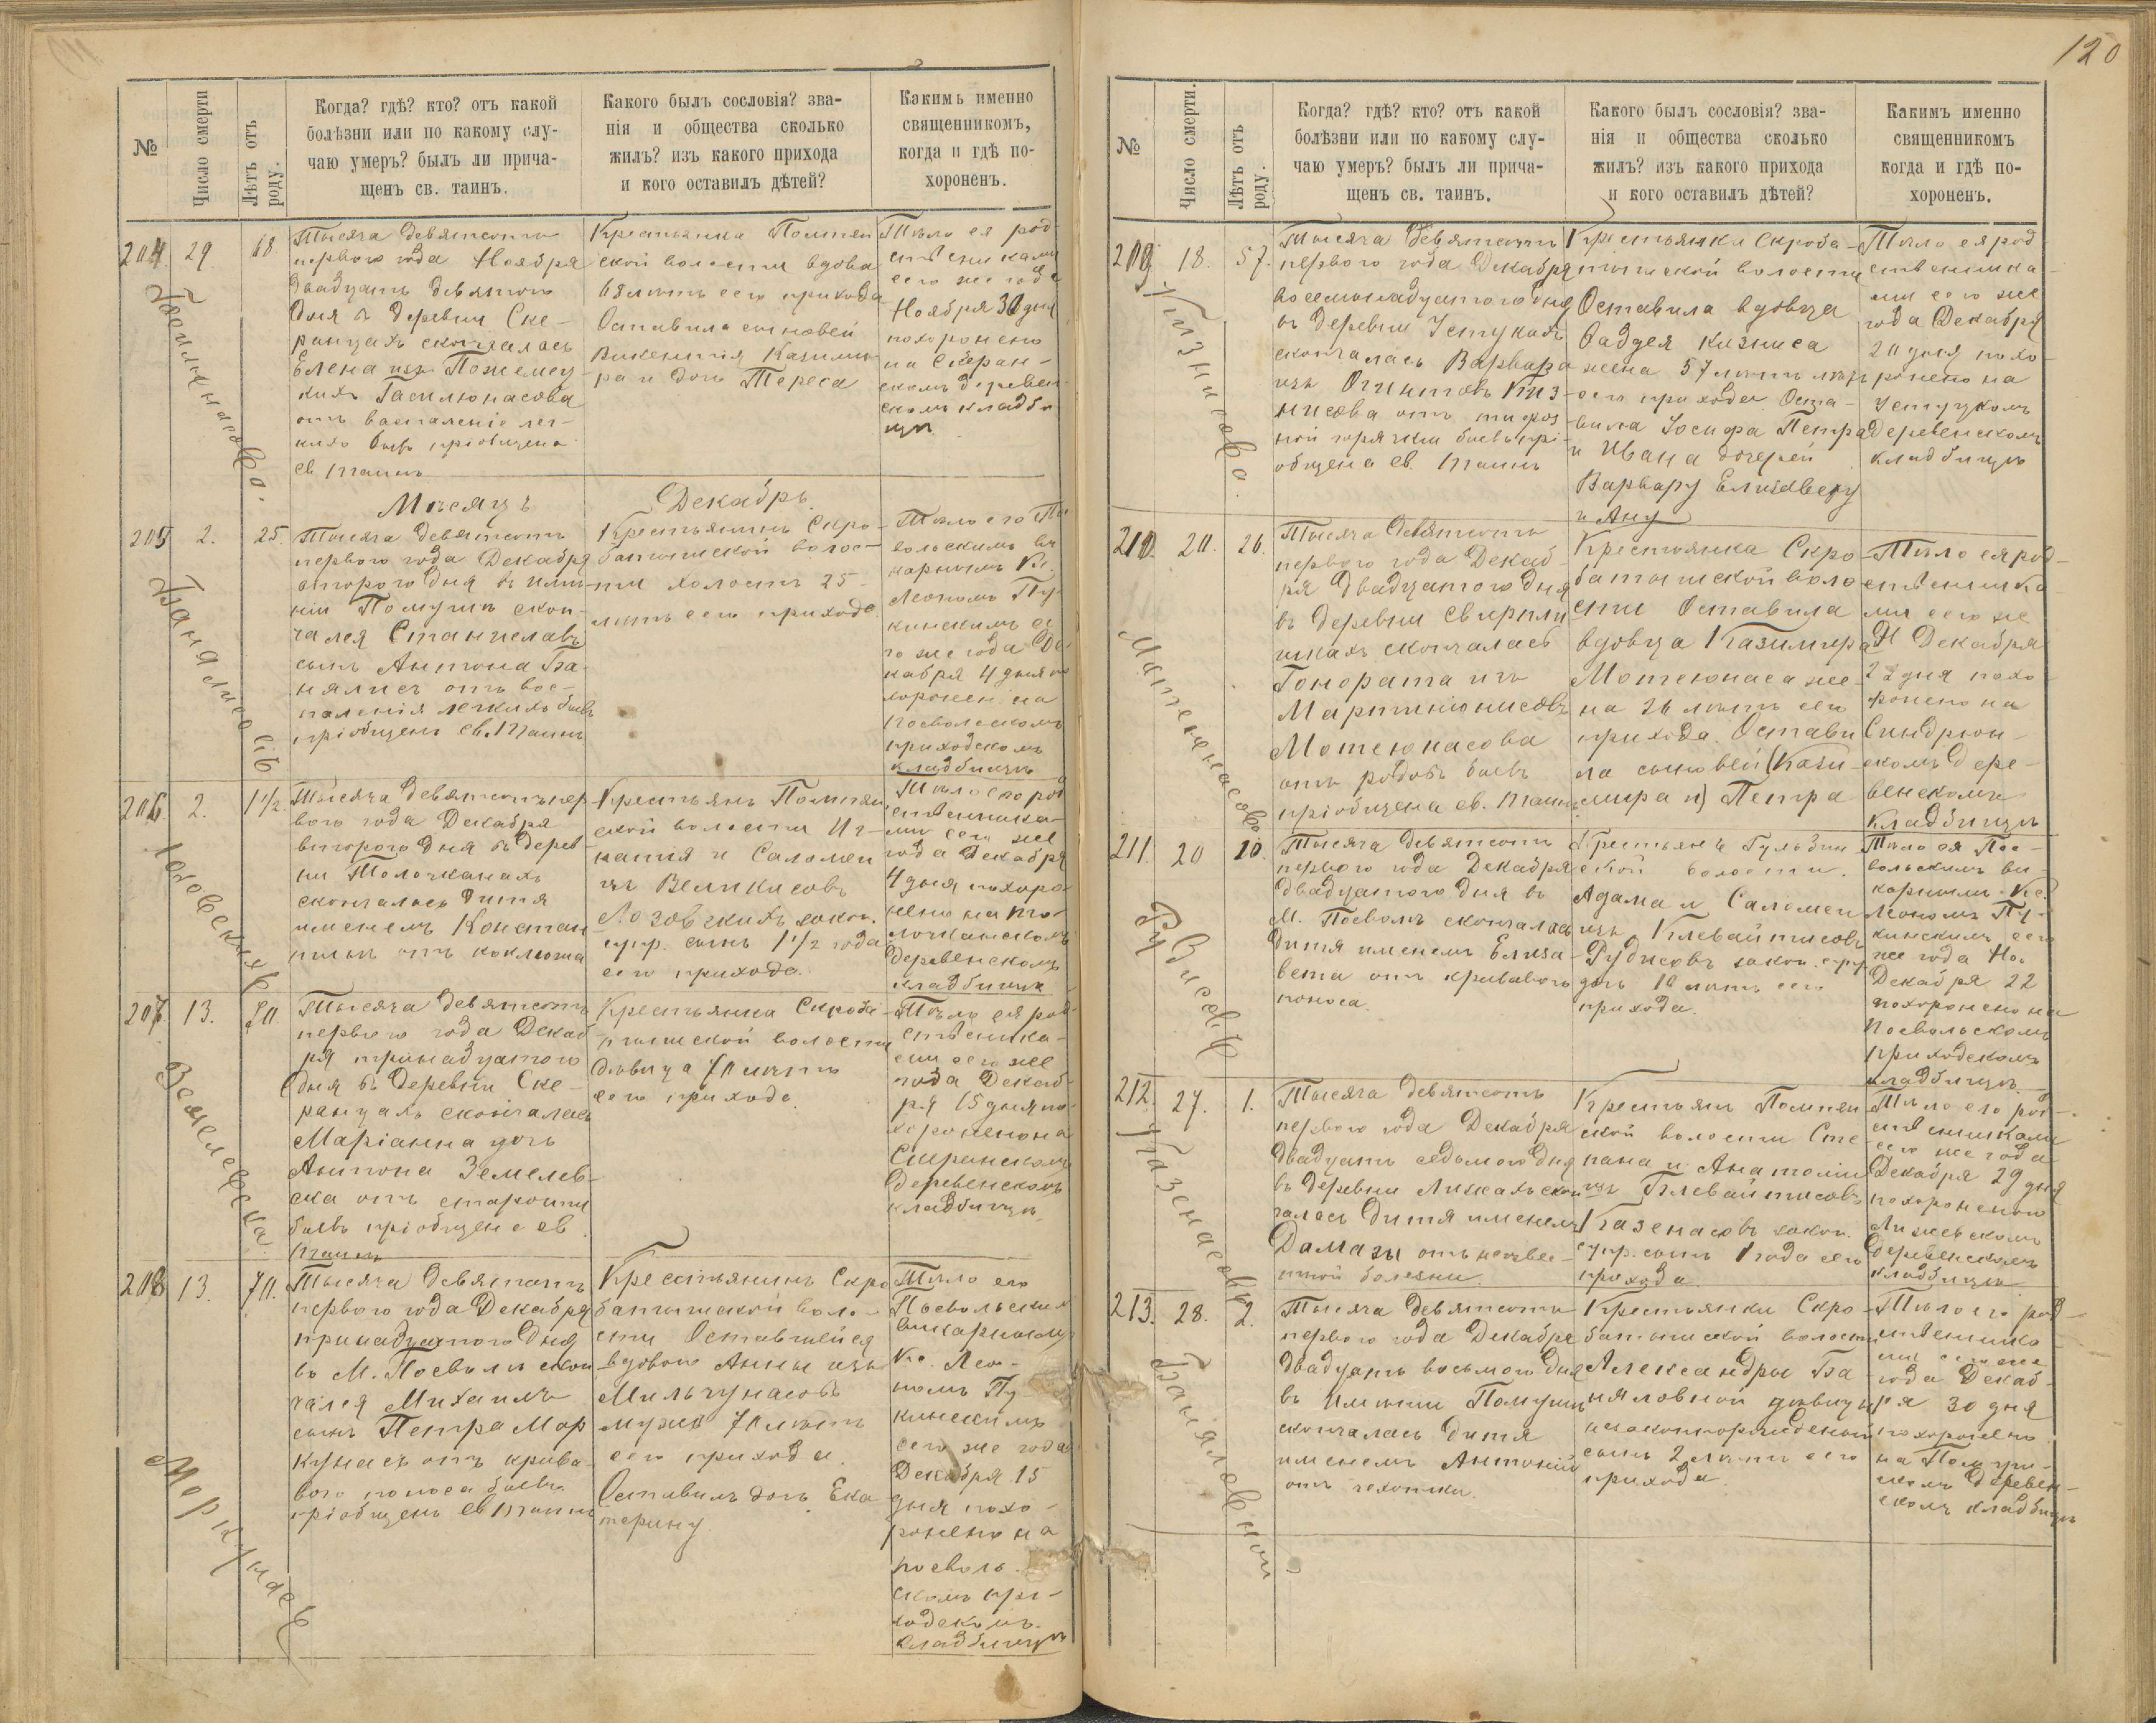 120
№
Число смерти
Лѣтъ отъ роду.
Когда? гдѣ? кто? отъ какой
болѣзни или по какому слу-
чаю умеръ? былъ ли прича-
щенъ св. таинъ.
Какого былъ сословія? зва-
нія и общества сколько
жилъ? изъ какого прихода
и кого оставилъ дѣтей?
Какимъ именно
священникомъ,
когда и гдѣ по-
хороненъ.
204
29
68
Тысяча девятьсотъ
перваго года Ноября
двадцать девятого
дня въ деревни Ске-
ранцахъ скончалась
Елена изъ
отъ воспаленіе лег-
кихъ бывъ пріобщена
св. таинъ
Крестьянка Помпян
ской волости вдова
68 лѣтъ сего прихода
Оставила сыновей
Викентія Казими-
ра и дочь Тереса
Тѣло ея род
ственниками
сего же года
Ноября 30 дня
похоронено
на Скеран-
скомъ деревен-
скомъ кладби
щѣ
Мѣсяцъ Декабрь
205
2.
25.
Тысяча девятьсотъ
перваго года Декабря
второго дня въ имѣ-
ніи Помуши скон-
чался Станиславъ
сынъ Антона Ба-
нялисъ отъ вос-
паленія легкихъ бывъ
пріобщенъ св. таинъ
Крестьянинъ Скро-
ботишской волос-
ти холостъ 25
лѣтъ сего прихода
Тѣло его По
вольскимъ ви
карнымъ Кс.
Леономъ Пу-
кинскимъ се
го же года Де-
кабря 4 дня по
хоронен на
Посвольскомъ
приходскомъ
кладбищѣ
206
2.
1 1/2
Тысяча девятьсотъ пер
вого года Декабря
второго дня въ дерев
ни Толочканахъ
скончалось дитя
именемъ Констан
тинъ отъ коклюша
Крестьянъ Помпян
ской волости Иг-
натія и Саломеи
изъ Великисовъ
Лозовскихъ закон.
супр. сынъ 1 1/2 года
сего прихода.
Тѣло его род
ственника-
ми сего же
года Декабря
4 дня похоро-
нено на То-
лочканскомъ
деревенскомъ
кладбищѣ
Лозовскихъ
207
13.
70
Тысяча девятьсотъ
перваго года Декаб
ря тринадцатого
дня въ деревни Ске-
ранцахъ скончалась
Маріанна дочь
Антона Земелев-
ска отъ старости
бывъ пріобщена св.
таинъ
Крестьянка Скробо-
тишской волости
дѣвица 70 лѣтъ
сего прихода.
Тѣло ея род-
ственника-
ми сего же
года Декаб-
ря 15 дня по-
хоронено на
Скеранскомъ
деревенскомъ
кладбищѣ
Земелевска
208
13.
70.
Тысяча девятьсотъ
перваго года Декабря
тринадцатого дня
въ М. Посволѣ скон
чался Михаилъ
сынъ Петра Мор
кунасъ отъ крива-
вого поноса бывъ
пріобщенъ св. таинъ
Крестьянинъ Скро
ботишской воло-
сти Оставшейся
вдовою Анны изъ
Мильчунасовъ
мужъ 70 лѣтъ
сего прихода
Оставилъ дочь Ека
терину.
Тѣло его
Посвольским
викарнымъ
Кс. Лео-
номъ Пу-
кинскимъ
сего же года
Декабря 15
дня похо-
ронено на
посволь-
скомъ при-
ходскомъ
кладбищѣ
Моркунасъ
№
Число смерти.
Лѣтъ отъ роду.
Когда? гдѣ? кто? отъ какой
болѣзни или по какому слу-
чаю умеръ? былъ ли прича-
щенъ св. таинъ.
Какого былъ сословія? зва-
нія и общества сколько
жилъ? изъ какого прихода
и кого оставилъ дѣтей?
Какимъ именно
священникомъ
когда и гдѣ по-
хороненъ.
209
18.
57.
Тысяча девятьсотъ
перваго года Декабря
восемнадцатого дня
въ деревни Устукахъ
скончалась Варвара
изъ Огинтовъ Киз-
нисова отъ тифоз
ной горячки бывъ прі-
общена св. таинъ
Крестьянка Скробо-
тишской волости
Оставила вдовца
Фаддея Кизниса
жена 57 лѣтъ
сего прихода Оста-
вила Іосифа Петра
и Ивана дочерей
Варвару Елизавету
и Ану
Тѣло ея род-
ственника-
ми сего же
года Декабря
20 дня похо-
ронено на
Устуцкомъ
деревенскомъ
кладбищѣ
Кизнисова.
210.
20.
26.
Тысяча девятьсотъ
перваго года Декаб-
ря двадцатого дня
въ деревни Свирпли
шкахъ скончалась
Гонората изъ
Мартинюнисовъ
Мотеюнасова
отъ родовъ бывъ
пріобщена св. таинъ
Крестьянка Скро
ботишской воло
сти Оставила
вдовца Казимира
Мотеюнаса же-
на 26 лѣтъ сего
прихода. Остави
ла сыновей (Кази-
мира и) Петра
Тѣло ея род-
ственника-
ми сего же
Декабря
22 дня похо-
ронено на
Синдрюн-
скомъ дере-
венскомъ
кладбищѣ
211.
20
10.
Тысяча девятьсотъ
перваго года Декабря
двадцатого дня въ
М. Посволѣ скончалась
дитя именемъ Елиза-
вета отъ кривавого
поноса.
Крестьянъ Гульбин
ской волости.
Адама и Саломеи
изъ Клевайтисовъ
Рудисовъ закон. супр
дочь 10 лѣтъ сего
прихода.
Тѣло ея Пос-
вольскимъ ви
карнымъ Кс.
Леономъ Пу-
кинскимъ сего
же года
Декабря 22
похоронено на
Посвольскомъ
приходскомъ
кладбищѣ
212.
27.
1.
Тысяча девятьсотъ
перваго года Декабря
двадцать седьмого дня
въ деревни Лижахъ скон
чалось дитя именемъ
Дамазы отъ неизвес-
тной болезни.
Крестьян Помпян
ской волости Сте-
пана и Анатоліи
изъ Блевайтисовъ
Казенасовъ закон.
супр. сынъ 1 года сего
прихода.
Тѣло его род-
ственниками
сего же года
Декабря 29 дня
похоронено
Лижевскомъ
деревенскомъ
кладбищѣ
Казенасовъ
213.
28.
2.
Тысяча девятьсотъ
перваго года Декабря
двадцать восьмого дня
въ Имѣнии Помуши
скончалась дитя
именемъ Антоній
отъ чехотки.
Крестьянки Скро-
ботишской волости
Александры Ба
няловной дѣвицы
незаконнорожденный
сынъ 2 лѣтъ сего
прихода.
Тѣло его род-
ственника
ми сего же
года Декаб-
ря 30 дня
похоронено
на Помуш-
скомъ деревен-
скомъ кладбищѣ
Баняловной